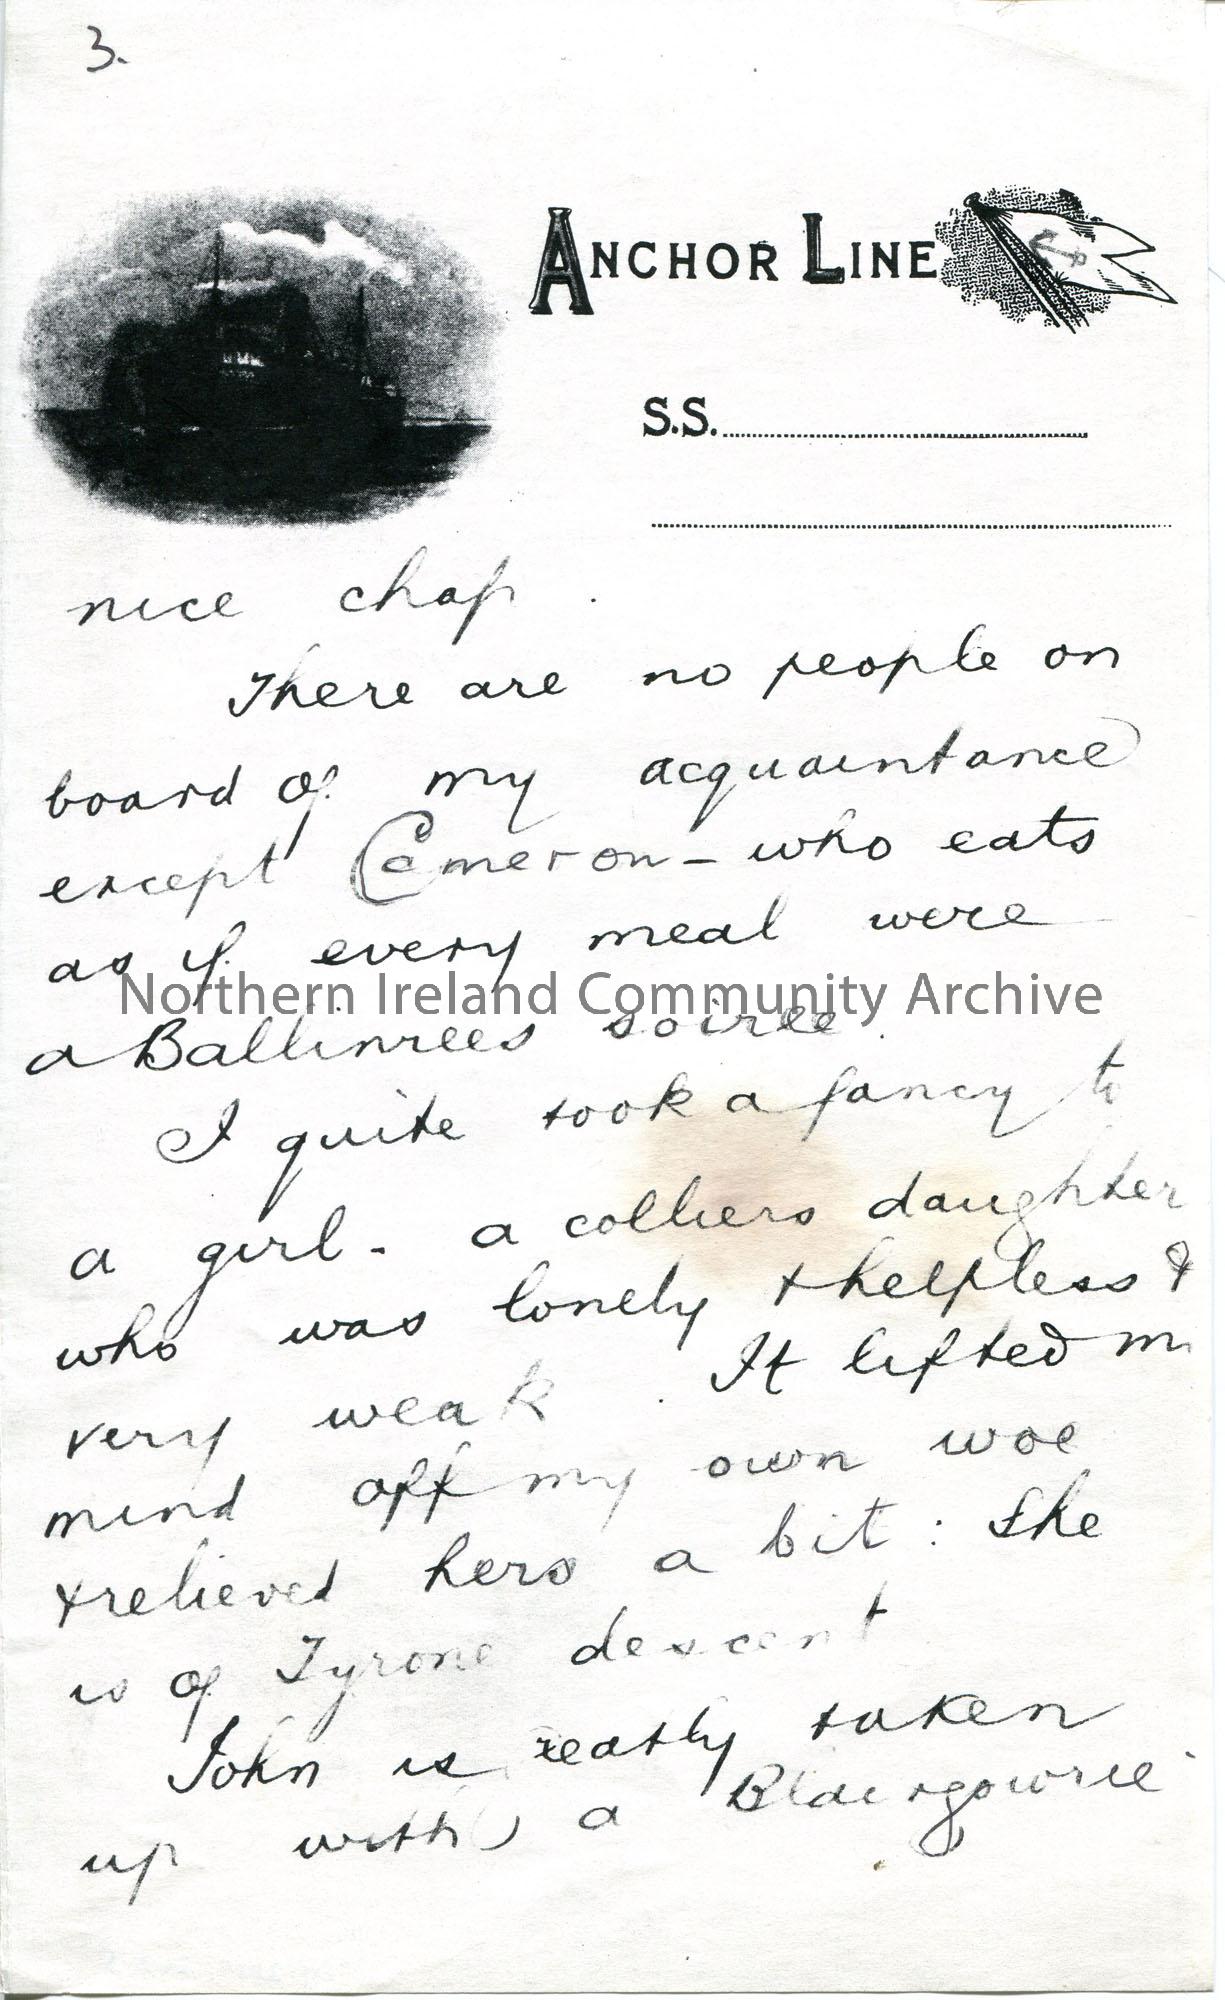 3.
ANCHOR LINE
S.S.
nice chap.
There are no people on
board of my acquaintance
except Cameron - who eats
as if every meal were
a Ballinrees soiree.
Northern Ireland Community Archive
I quite took a fancy to
a girl - a colliers daughter
who was lonely & helpless &
very weak. It lifted m
mind off my own woe
& relieved hers a bit: She
is of Tyrone descent
John is taken
up with a Blairgowrie